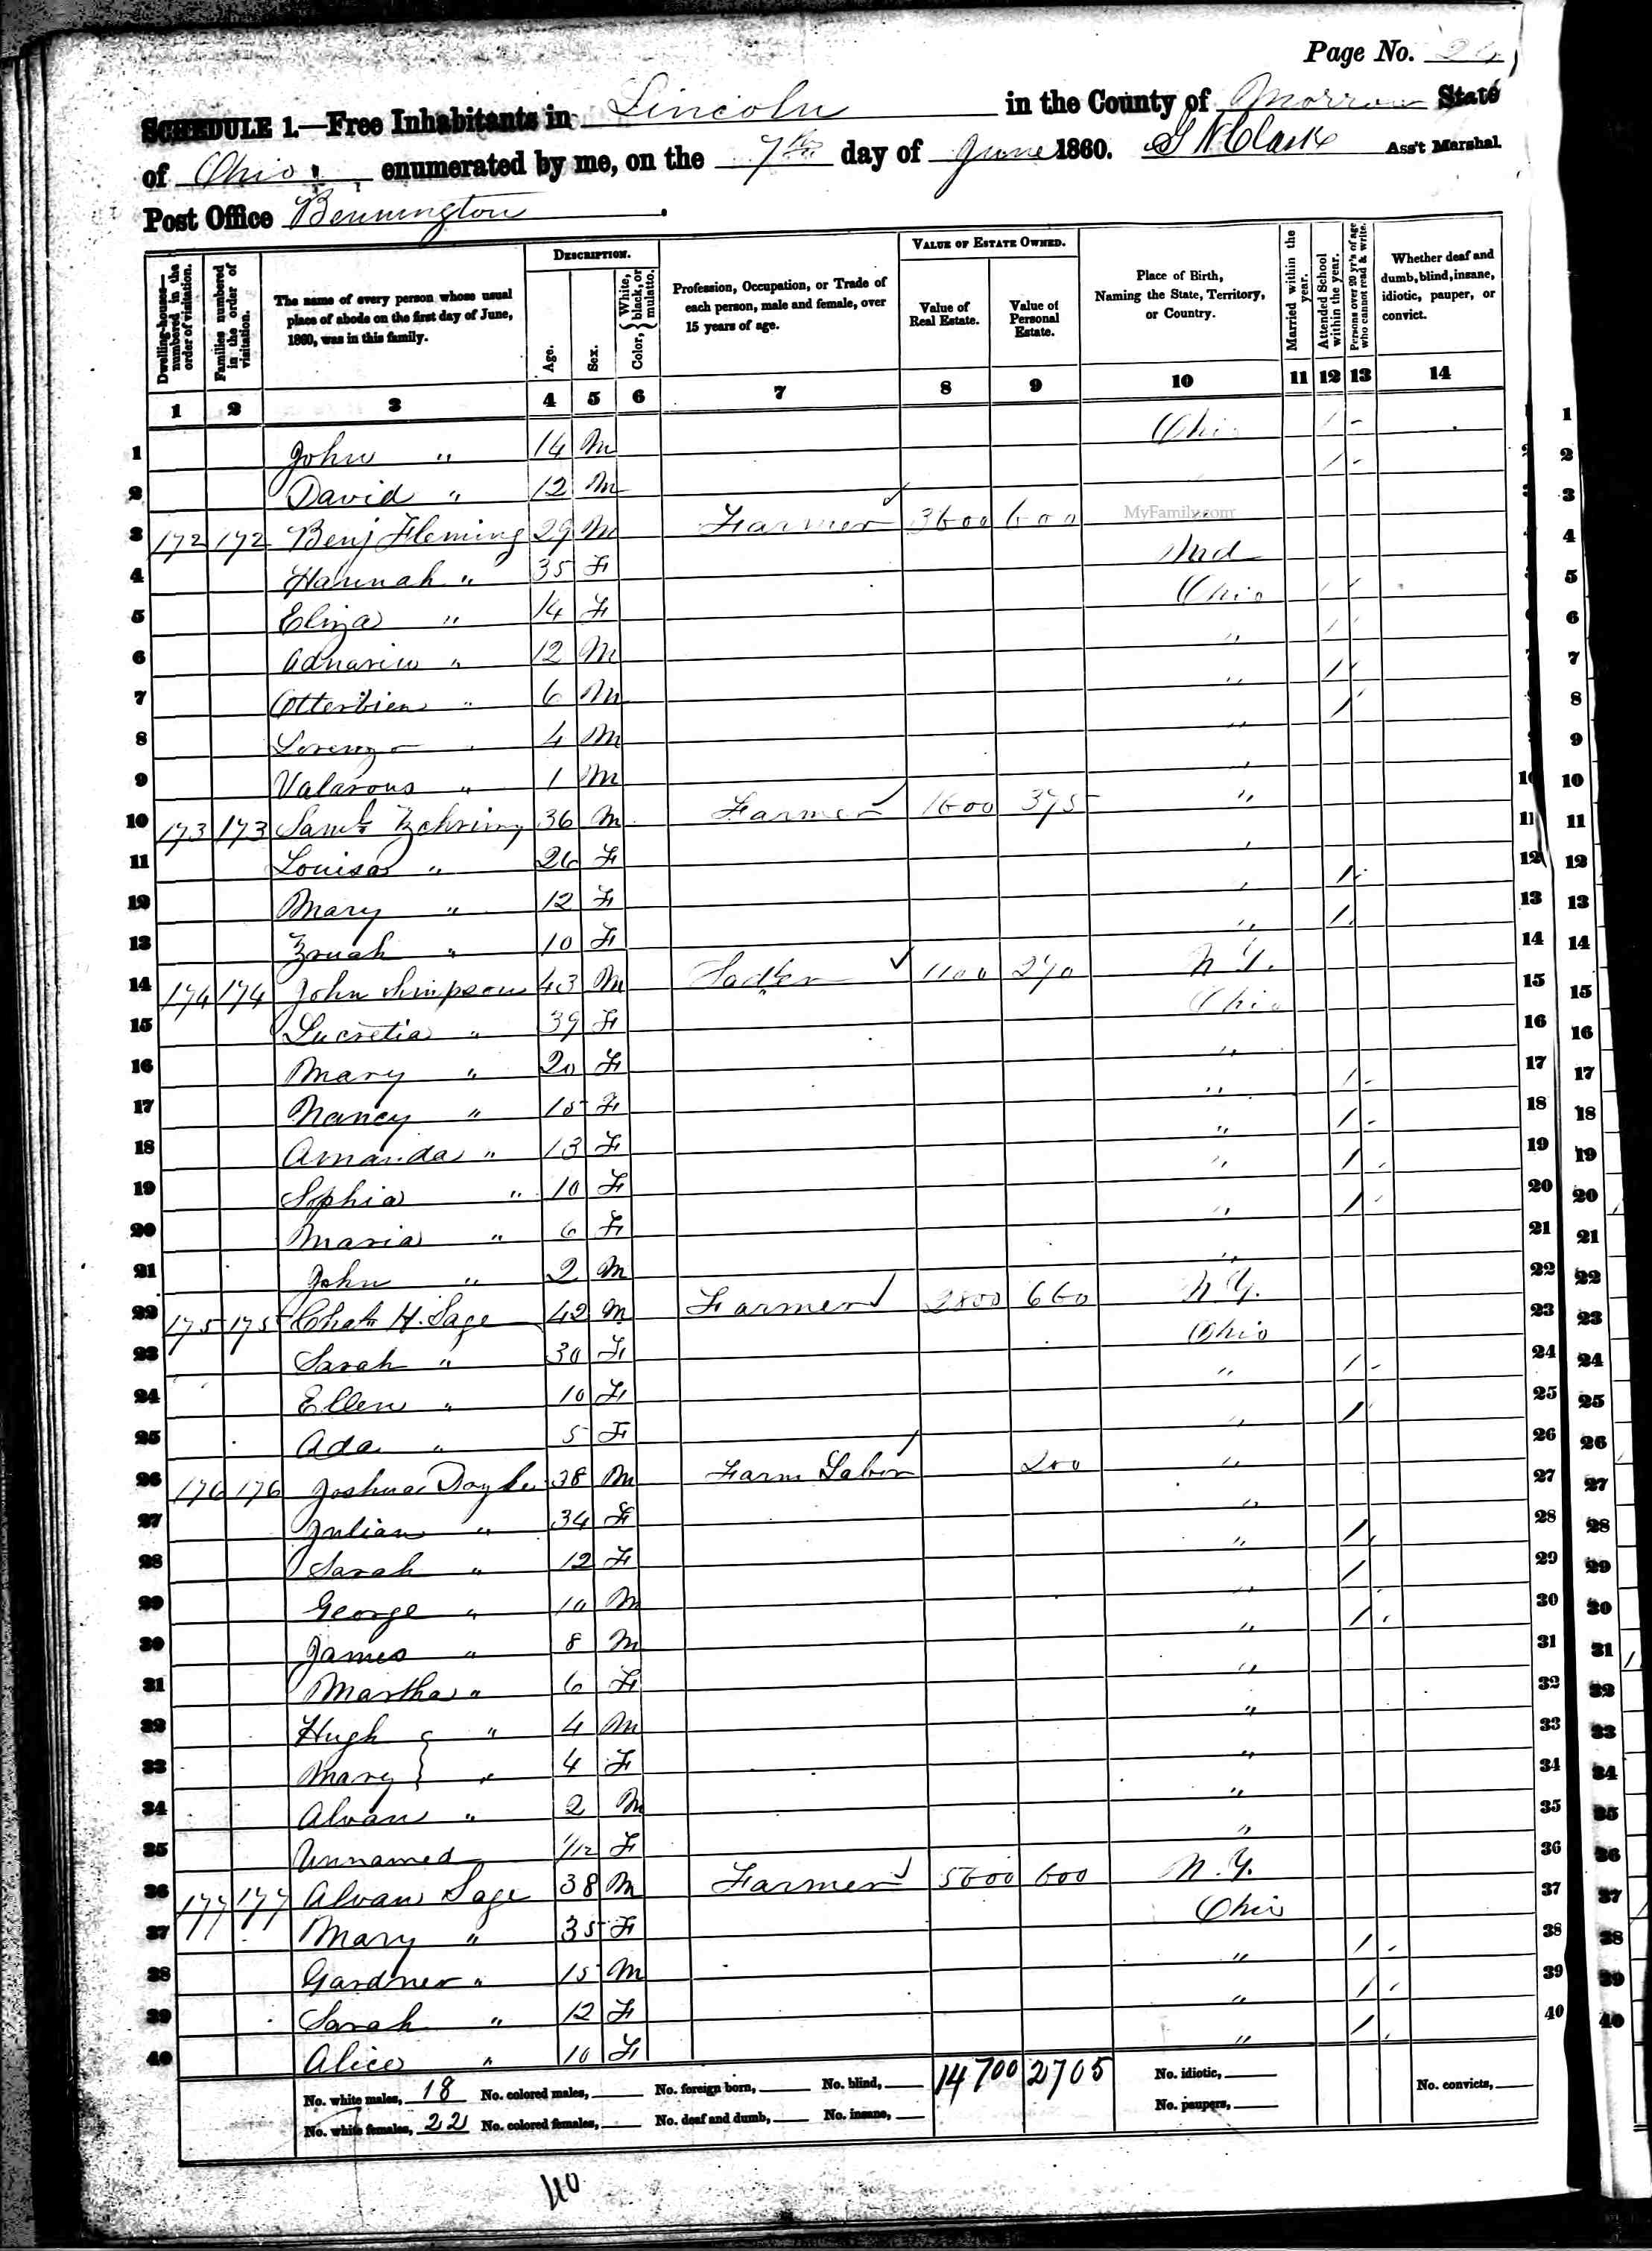 Page No. 24
SCHEDULE 1.—Free Inhabitants in Lincoln in the County of Morrow State
of Ohio enumerated by me, on the 7th day of June 1860. G N Clark Ass't Marshal.
Post Office Bennington
Dwelling-houses—numbered in the order of visitation. Families numbered in the order of visitation. The name of every person whose usual place of abode on the first day of June, 1860, was in this family. DESCRIPTION. Age. Sex. Color, White, black, or mulatto. Profession, Occupation, or Trade of each person, male and female, over 15 years of age. VALUE OF ESTATE OWNED. Value of Real Estate. Value of Personal Estate. Place of Birth, Naming the State, Territory, or Country. Married within the year. Attended School within the year. Persons over 20 yr's of age who cannot read & write. Whether deaf and dumb, blind, insane, idiotic, pauper, or convict.
1 2 3 4 5 6 7 8 9 10 11 12 13 14
1 John " 14 M Ohio / 1
2 David " 12 M / 2
3 172 172 Benj Fleming 29 M Farmer 3600 600 MyFamily.com 3
4 Hannah " 35 F Md 4
5 Eliza " 14 F Ohio / 5
6 " 12 M " / 6
7 Otterbien " 6 M " / 7
8 Lorenzo " 4 M " / 8
9 Valarous " 1 M " 9
10 173 173 Saml Zehring 36 M Farmer 1600 375 " 10
11 Louisa " 26 F " 11
12 Mary " 12 F " / 12
13 Zruah " 10 F " / 13
14 174 174 John Simpson 43 M Sadler 1100 270 N Y. 14
15 Lucretia " 39 F Ohio 15
16 Mary " 20 F " 16
17 Nancy " 15 F " / 17
18 Amanda " 13 F " / 18
19 Sophia " 10 F " / 19
20 Maria " 6 F " / 20
21 John " 2 M " 21
22 175 175 Chas H. Sage 42 M Farmer 2800 660 N Y. 22
23 Sarah " 30 F Ohio 23
24 Ellen " 10 F " / 24
25 Ada " 5 F " / 25
26 176 176 Joshua Doyle 38 M Farm Labor 200 " 26
27 Julian " 34 F " 27
28 Sarah " 12 F " / 28
29 George " 10 M " / 29
30 James " 8 M " / 30
31 Martha " 6 F " 31
32 Hugh } " 4 M " 32
33 Mary } " 4 F " 33
34 Alvan " 2 M " 34
35 Unnamed 1/12 F " 35
36 177 177 Alvan Sage 38 M Farmer 5600 600 N. Y. 36
37 Mary " 35 F Ohio 37
38 Gardner " 15 M " / 38
39 Sarah " 12 F " / 39
40 Alice " 10 F " / 40
No. white males, 18 No. colored males, No. foreign born, No. blind, 14700 2705 No. idiotic, No. convicts,
No. white females, 22 No. colored females, No. deaf and dumb, No. insane, No. paupers,
40